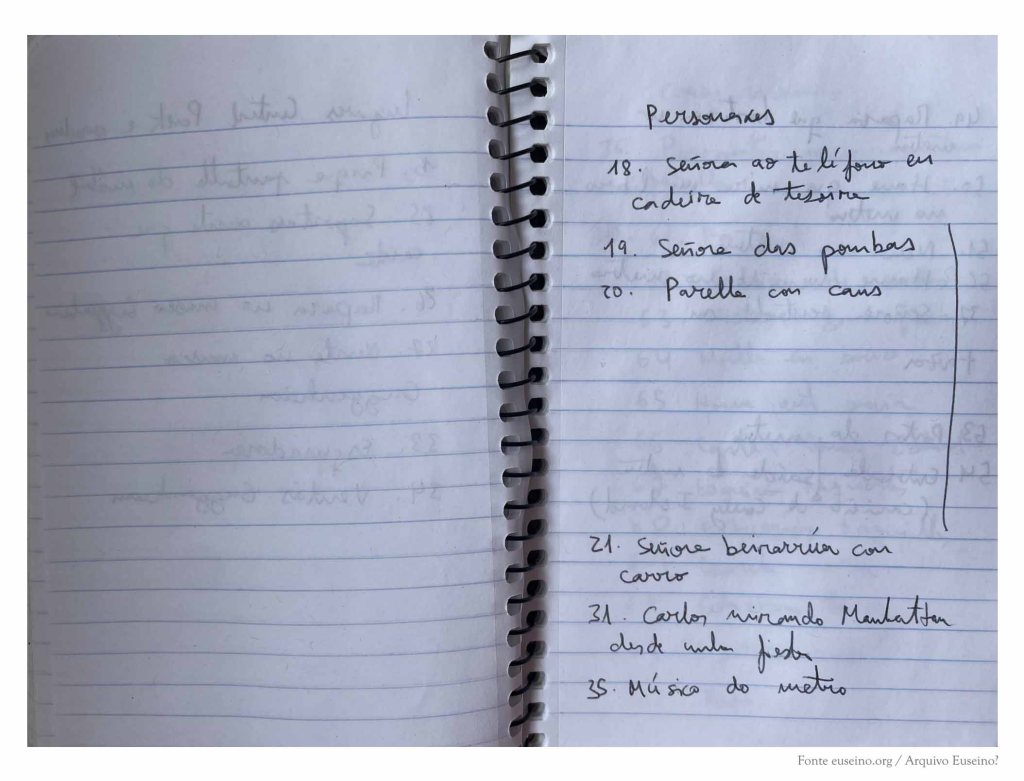 Personaxes
18. Señora ao teléfono en
cadeira de tesoira
19. Señora das pombas
20. Parella con cans
21. Señora beirarrúa con
carro
31. Carlos mirando Manhattan
desde unha fiestra
35. Músico do metro
Fonte euseino.org / Arquivo Euseino?